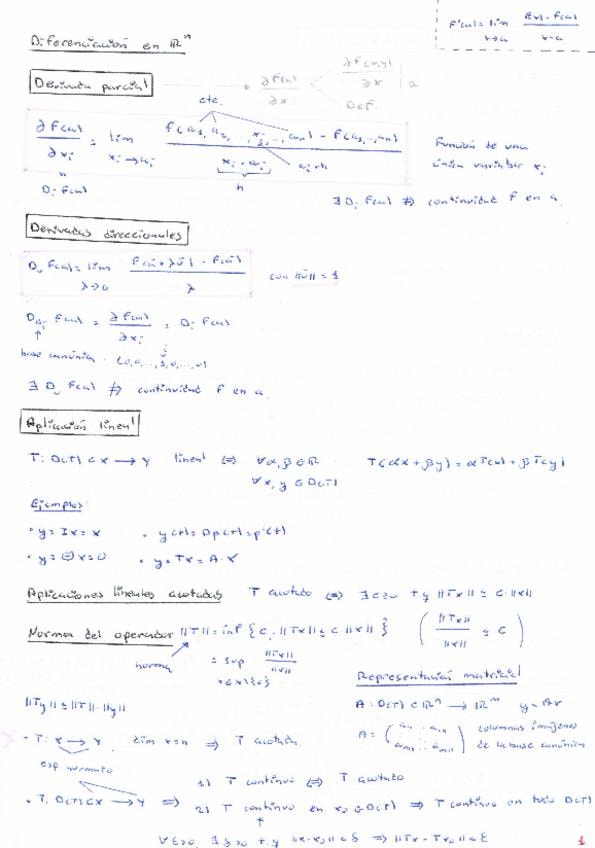 Diferenciación en ℝⁿ
f'(a) = lim_{x→a} (f(x) - f(a)) / (x - a)
Derivada parcial
∂f(a)/∂x < ∂f(x,y)/∂x |a
Def.
cte.
∂f(a)/∂xᵢ = lim_{xᵢ→aᵢ} (f(a₁, a₂, ..., xᵢ, ..., aₙ) - f(a₁, .., aₙ)) / (xᵢ - aᵢ)
aᵢ+h
h
Función de una
única variable xᵢ
Dᵢ f(a)
∃ Dᵢ f(a) ⇏ continuidad f en a.
Derivadas direccionales
Dᵤ f(a) = lim_{λ→0} (f(ā + λū) - f(ā)) / λ con ||ū|| = 1
D_{eᵢ} f(a) = ∂f(a)/∂xᵢ = Dᵢ f(a)
base canónica · (0,0,...,1,0,...,0)
i
∃ Dᵤ f(a) ⇏ continuidad f en a.
Aplicación lineal
T: D(T) ⊂ X → Y lineal ⟺ ∀α, β ∈ ℝ T(αx + βy) = αT(x) + βT(y)
∀x, y ∈ D(T)
Ejemplos:
• y = Ix = x • y(t) = Dp(t) = p'(t)
• y = Θx = 0 • y = Tx = A·x
Aplicaciones lineales acotadas T acotado ⟺ ∃ c≥0 t.q ||Tx|| ≤ c·||x||
Norma del operador ||T|| = inf { c, ||Tx|| ≤ c ||x|| } ( ||Tx|| / ||x|| ≤ c )
norma
= sup_{x∈X\{0}} ||Tx|| / ||x||
Representación matricial
||Ty|| ≤ ||T||·||y||
A: D(T) ⊂ ℝⁿ → ℝᵐ y = Ax
A = (a₁₁ ... a₁ₙ
aₘ₁ ... aₘₙ) columnas imágenes
de la base canónica
• T: X → Y dim X = n ⟹ T acotada.
esp normato
1) T continuo ⟺ T acotado
• T: D(T) ⊂ X → Y ⟹ 2) T continuo en x₀ ∈ D(T) ⟹ T continuo en todo D(T)
∀ε>0, ∃δ>0 t.q ||x-x₀|| ≤ δ ⟹ ||Tx - Tx₀|| ≤ ε
1